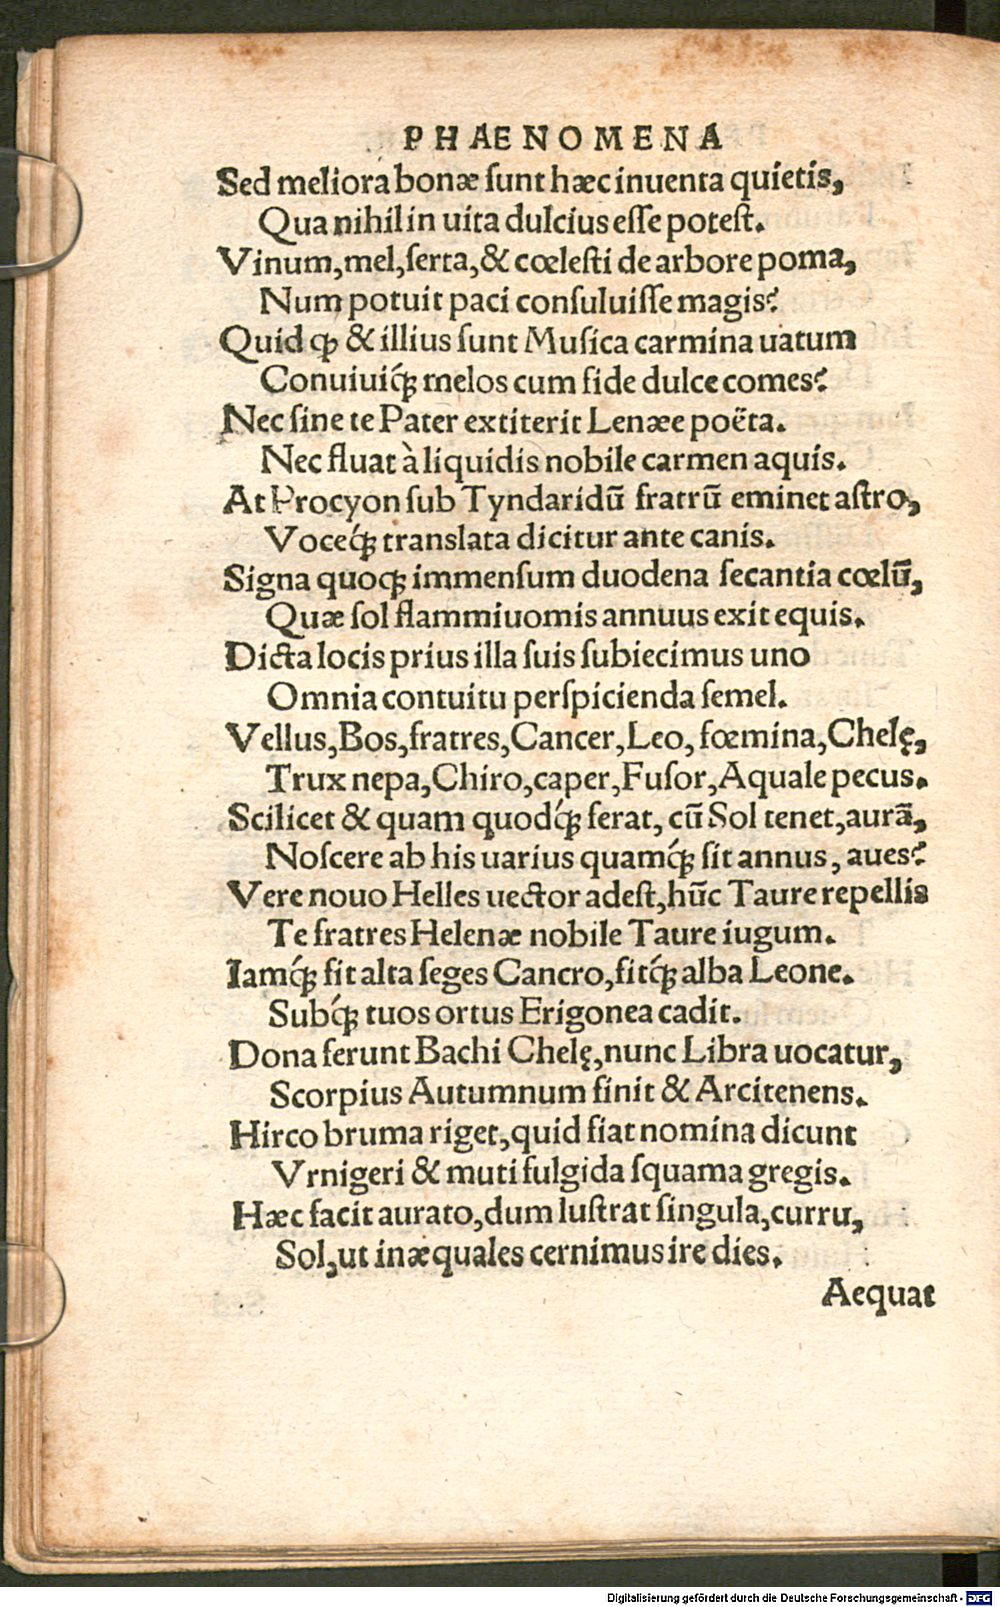 PHAENOMENA
Sed meliora bonæ ſunt hæc inuenta quietis,
Qua nihil in uita dulcius eſſe poteſt.
Vinum, mel, ſerta, & cœleſti de arbore poma,
Num potuit paci conſuluiſſe magis?
Quid ꝙ & illius ſunt Muſica carmina uatum
Conuiuiq́ꝫ melos cum fide dulce comes?
Nec ſine te Pater extiterit Lenæe poëta.
Nec fluat à liquidis nobile carmen aquis.
At Procyon ſub Tyndaridū fratrū eminet aſtro,
Voceq́ꝫ translata dicitur ante canis.
Signa quoqꝫ immenſum duodena ſecantia cœlū,
Quæ ſol flammiuomis annuus exit equis.
Dicta locis prius illa ſuis ſubiecimus uno
Omnia contuitu perſpicienda ſemel.
Vellus, Bos, fratres, Cancer, Leo, fœmina, Chelę,
Trux nepa, Chiro, caper, Fuſor, Aquale pecus.
Scilicet & quam quodq́ꝫ ferat, cū Sol tenet, aurā,
Noſcere ab his uarius quamq́ꝫ ſit annus, aues?
Vere nouo Helles uector adeſt, hūc Taure repellis
Te fratres Helenæ nobile Taure iugum.
Iamq́ꝫ fit alta ſeges Cancro, fitq́ꝫ alba Leone.
Subq́ꝫ tuos ortus Erigonea cadit.
Dona ferunt Bachi Chelę, nunc Libra uocatur,
Scorpius Autumnum finit & Arcitenens.
Hirco bruma riget, quid fiat nomina dicunt
Vrnigeri & muti fulgida ſquama gregis.
Hæc facit aurato, dum luſtrat ſingula, curru,
Sol, ut inæquales cernimus ire dies.
Aequat
Digitalisierung gefördert durch die Deutsche Forschungsgemeinschaft - DFG